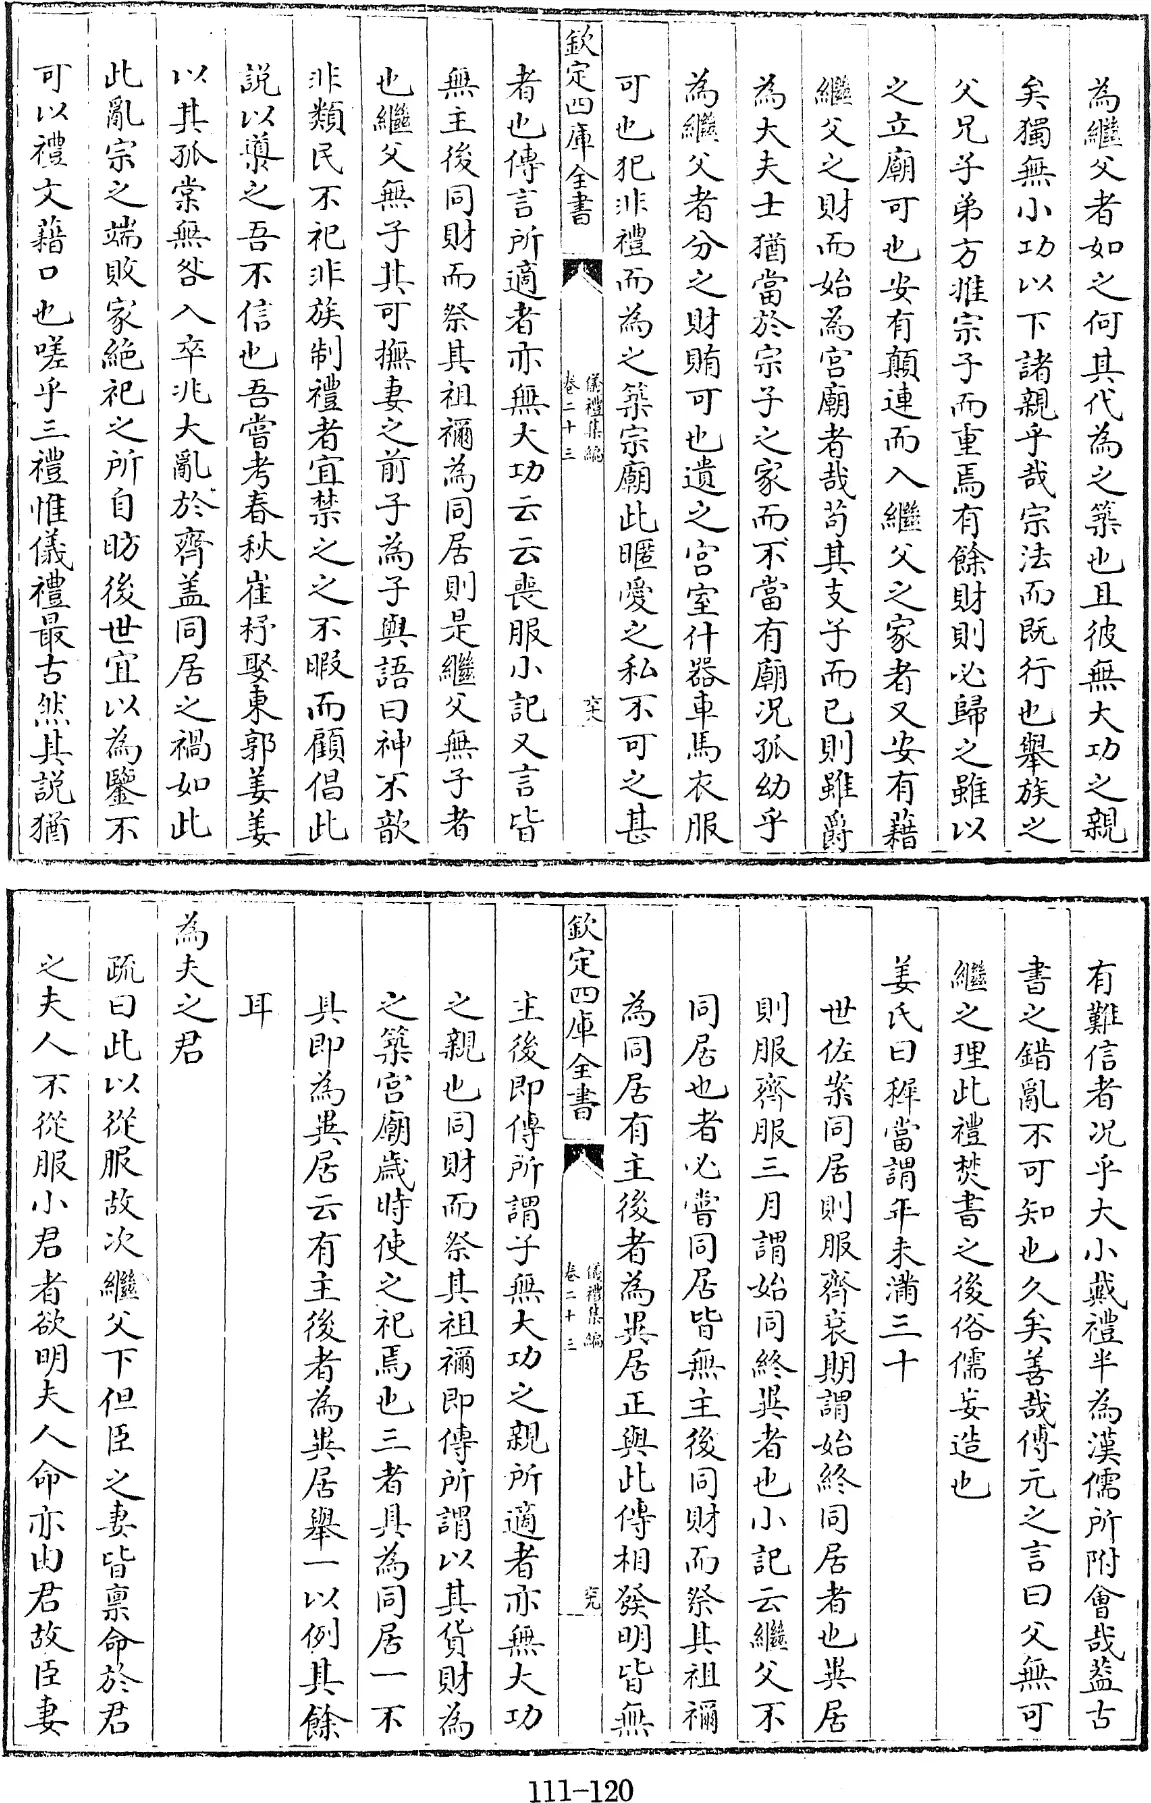 為繼父者如之何其代為之築也且彼無大功之親
矣獨無小功以下諸親乎哉宗法而既行也舉族之
父兄子弟方惟宗子而重焉有餘財則必歸之雖以
之立廟可也安有顛連而入繼父之家者又安有藉
繼父之財而始為宮廟者哉苟其支子而已則雖爵
為大夫士猶當於宗子之家而不當有廟况孤幼乎
為繼父者分之財賄可也遺之宮室什器車馬衣服
可也犯非禮而為之築宗廟此暱愛之私不可之甚
欽定四庫全書
儀禮集編
卷二十三
者也傳言所適者亦無大功云云喪服小記又言皆
無主後同財而祭其祖禰為同居則是繼父無子者
也繼父無子其可撫妻之前子為子與語曰神不歆
非類民不祀非族制禮者宜禁之之不暇而顧倡此
説以導之吾不信也吾嘗考春秋崔杼娶東郭姜姜
以其孤棠無咎入卒兆大亂於齊盖同居之禍如此
此亂宗之端敗家絶祀之所自昉後世宜以為鑒不
可以禮文藉口也嗟乎三禮惟儀禮最古然其説猶
有難信者况乎大小戴禮半為漢儒所附會哉葢古
書之錯亂不可知也久矣善哉傅元之言曰父無可
繼之理此禮焚書之後俗儒妄造也
姜氏曰穉當謂年未滿三十
世佐案同居則服齊衰期謂始終同居者也異居
則服齊服三月謂始同終異者也小記云繼父不
同居也者必嘗同居皆無主後同財而祭其祖禰
為同居有主後者為異居正與此傳相發明皆無
欽定四庫全書
儀禮集編
卷二十三
主後即傳所謂子無大功之親所適者亦無大功
之親也同財而祭其祖禰即傳所謂以其貨財為
之築宮廟歲時使之祀焉也三者具為同居一不
具即為異居云有主後者為異居舉一以例其餘
耳
為夫之君
疏曰此以從服故次繼父下但臣之妻皆禀命於君
之夫人不從服小君者欲明夫人命亦由君故臣妻
111-120